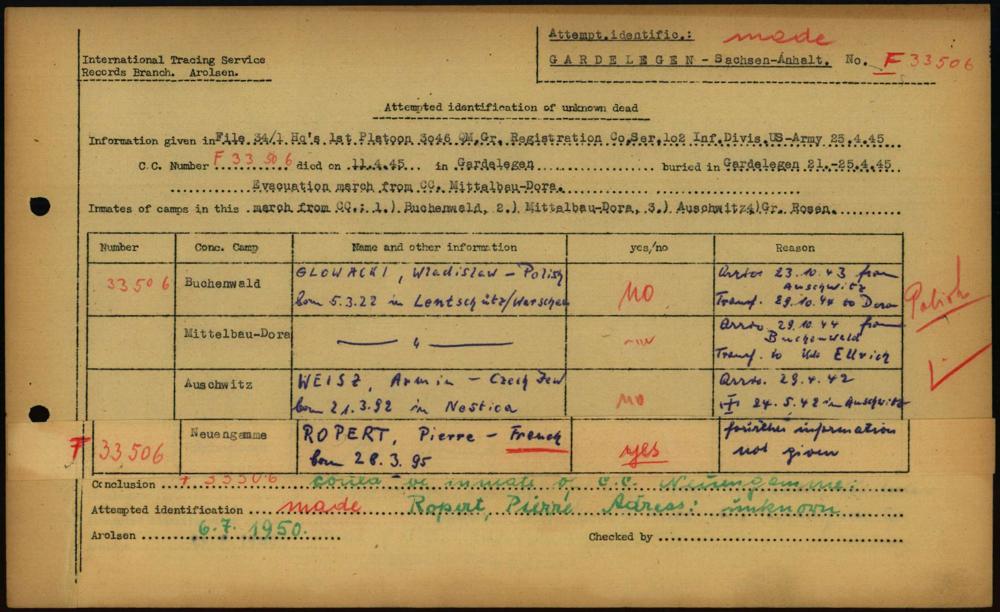 Attempt.identific.: made
International Tracing Service
Records Branch. Arolsen.
GARDELEGEN - Sachsen-Anhalt. No. F 33506
Attempted identification of unknown dead
Information given in File 34/1 Hq's 1st Platoon 3o46 QM.Gr. Registration Co.Ser.1o2 Inf.Divis.US-Army 25.4.45
C.C. Number F 33506 died on 11.4.45 in Gardelegen buried in Gardelegen 21.-25.4.45
Evacuation march from CC. Mittelbau-Dora.
Inmates of camps in this march from CC.: 1.) Buchenwald, 2.) Mittelbau-Dora, 3.) Auschwitz4)Gr. Rosen.
Number Conc. Camp Name and other information yes/no Reason
33506 Buchenwald GLOWACKI, Wladislaw - Polish no Arriv. 23.10.43 from
Auschwitz
born 5.3.22 in Lentschütz/Warschau Transf. 29.10.44 to Dora
Polish
Mittelbau-Dora — " — Arriv. 29.10.44 from
Buchenwald
Transf. to Ellrich
Auschwitz WEISZ, Armin - Czech Jew no Arriv. 29.4.42
born 21.3.92 in 24.5.42 in Auschwitz
F 33506 Neuengamme ROPERT, Pierre - French yes further information
born 28.3.95 not given
Conclusion F 33506 could be inmate o c.c. Neuengamme:
Attempted identification made Ropert, Pierre Adress: unknown
Arolsen 6.7.1950. Checked by